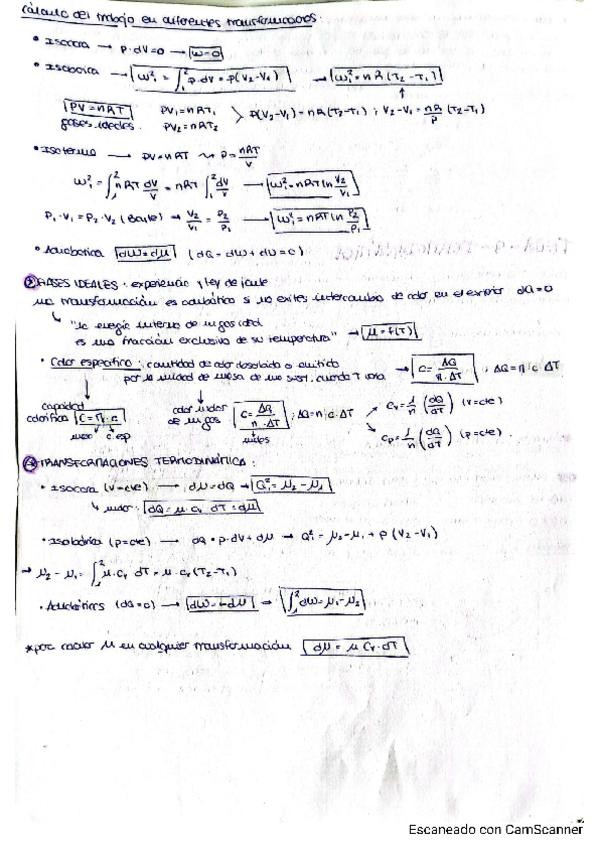 Cálculo del trabajo en diferentes transformaciones:
• Isocora → P·dV=0 → W=0
• Isobárica → W₁² = ∫₁² p·dV = P(V₂-V₁) → W₁² = nR(T₂-T₁)
PV=nRT PV₁=nRT₁ > P(V₂-V₁)=nR(T₂-T₁) ; V₂-V₁ = nR/P (T₂-T₁)
gases ideales. PV₂=nRT₂
• Isoterma → PV=nRT ↝ P = nRT/V
W₁² = ∫₁² nRT dV/V = nRT ∫₁² dV/V → W₁² = nRT ln V₂/V₁
P₁·V₁=P₂·V₂ (Boyle) → V₂/V₁ = P₂/P₁ → W₁² = nRT ln P₂/P₁
• Adiabática dW=dU (dQ = dW + dU = 0)
GASES IDEALES: experiencia y ley de Joule
una transformación es adiabática si no existes intercambio de calor en el exterior dQ=0
"la energía interna de un gas ideal
es una función exclusiva de su temperatura" → μ=f(T)
• Calor específico: cantidad de calor absorbido o emitido
por la unidad de masa de una sust. cuando T varía → C = ΔQ/n·ΔT ; ΔQ=n|c·ΔT
capacidad calor molar C = ΔQ/n·ΔT ; ΔQ=n|c·ΔT Cv = 1/n (dQ/dT) (v=cte)
calorífica C = n·c de un gas Cp = 1/n (dQ/dT) (p=cte).
c.esp moles
④ TRANSFORMACIONES TERMODINÁMICA:
• Isocora (V=cte) → dU=dQ → Q₁² = μ₂-μ₁
dQ = μ cv dT = dμ
• Isobárica (p=cte) → dQ = p·dV+dμ → Q₁² = μ₂-μ₁ + p(V₂-V₁)
→ μ₂-μ₁ = ∫₁² μ·cv dT = μ·cv(T₂-T₁)
• Adiabáticas (dQ=0) → dW=-dU → ∫₁² dW = μ₁-μ₂
*por calor μ en cualquier transformación dU = μ Cv·dT
Escaneado con CamScanner